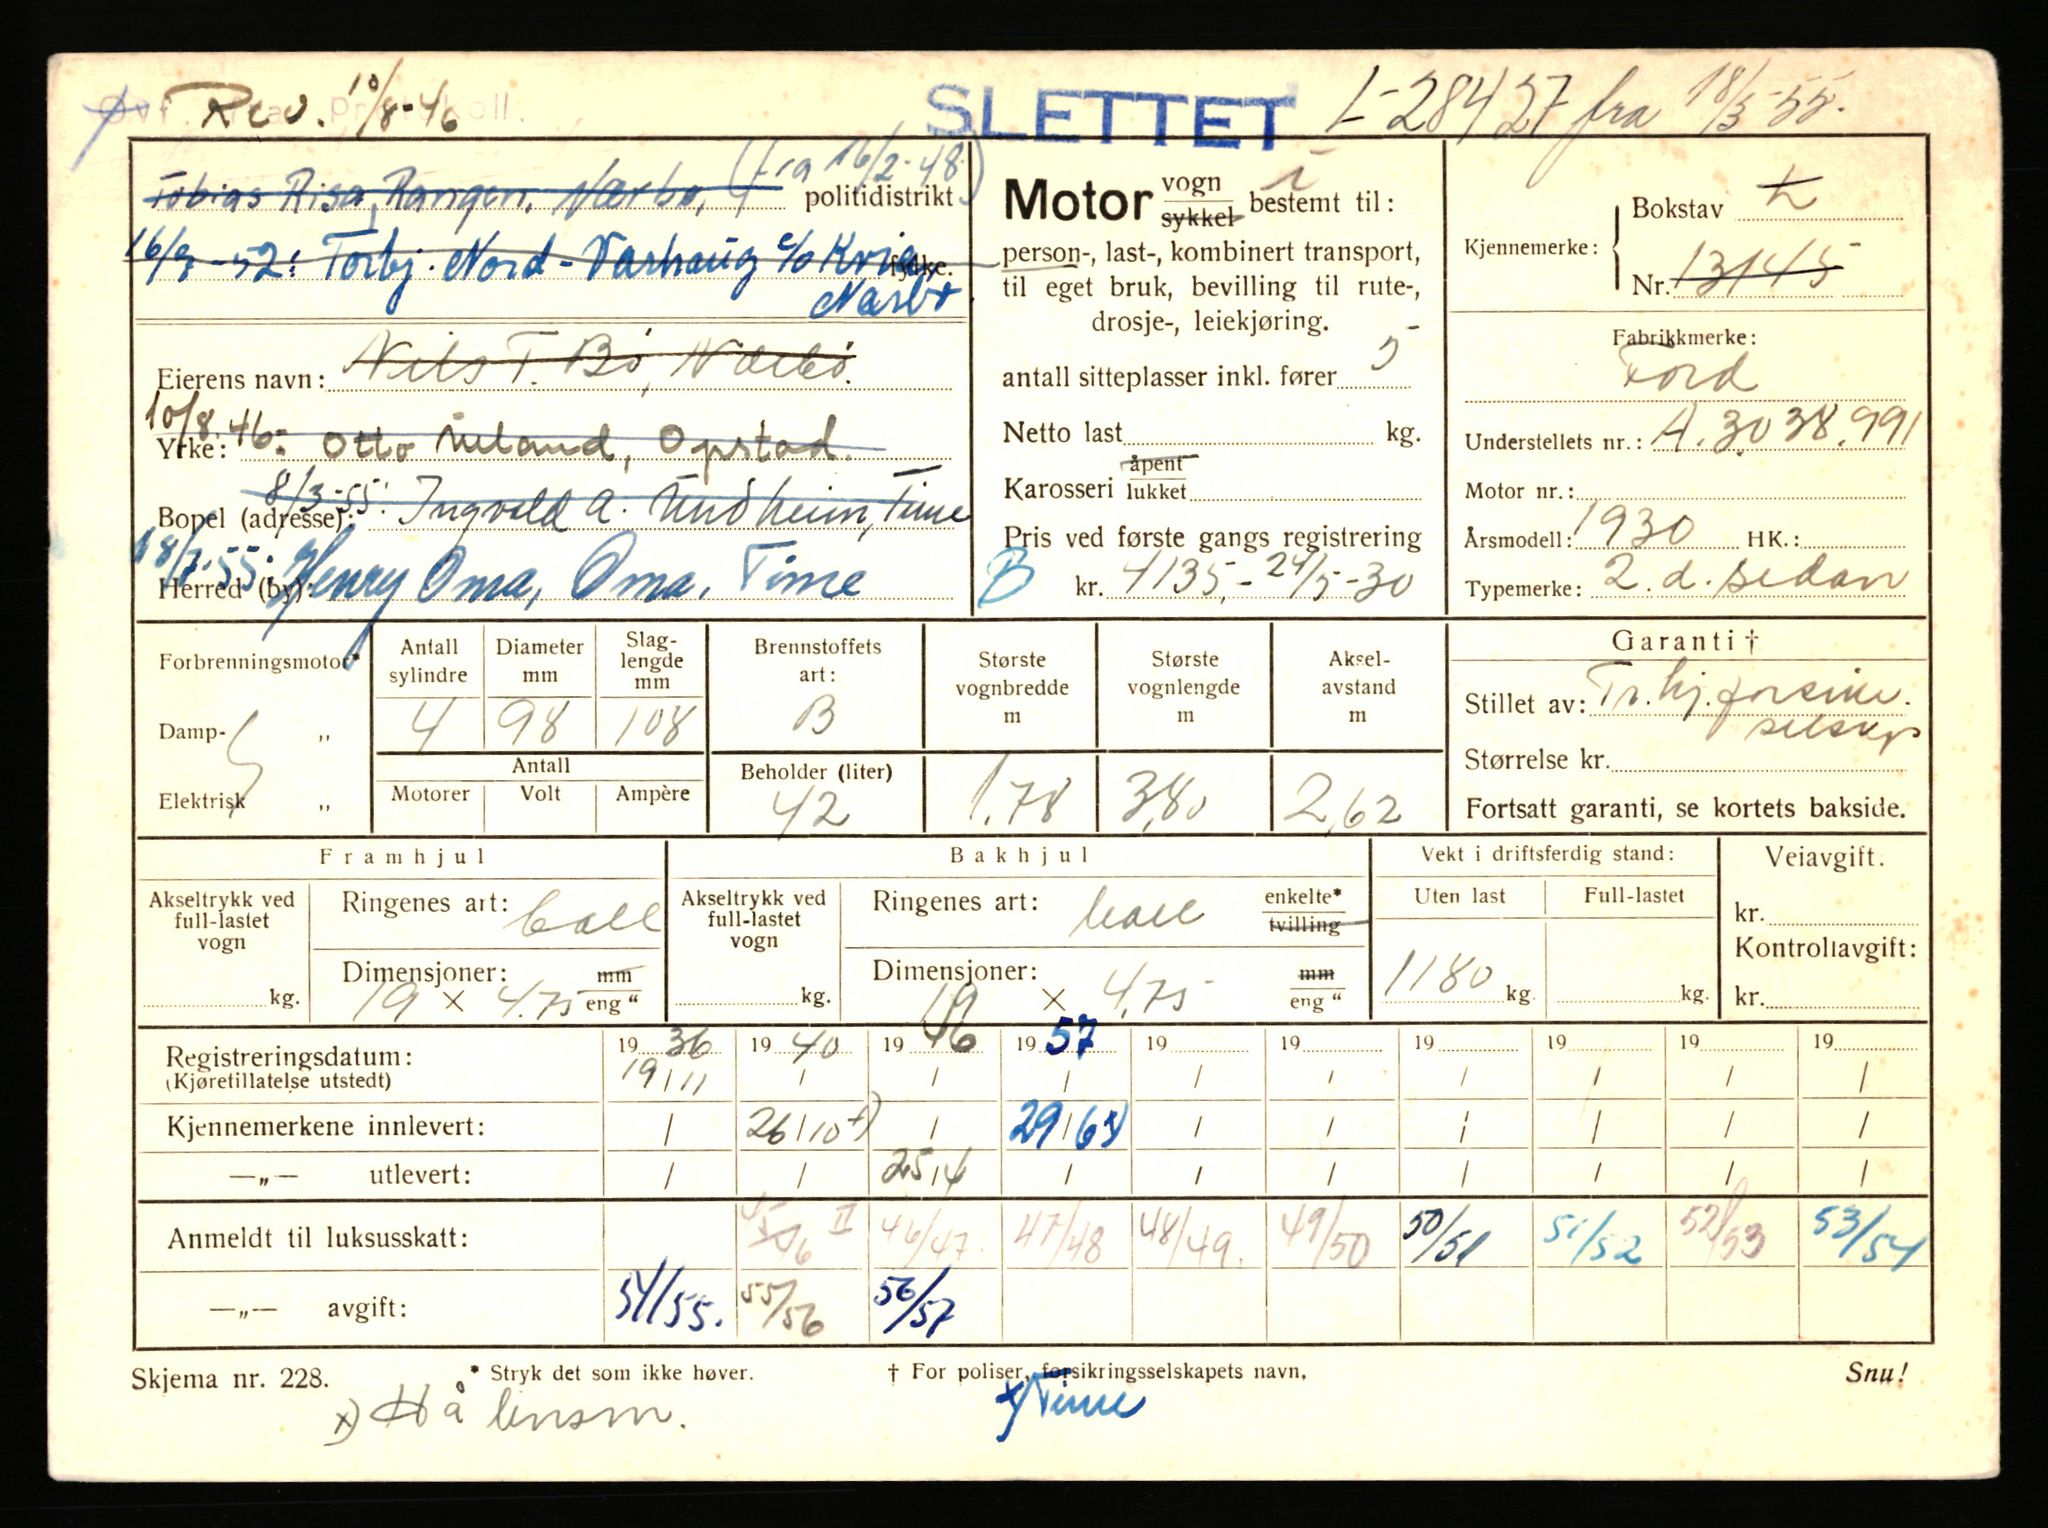 Rev. 10/8-46
SLETTET L-28427 fra 18/3-55.
Tobias Risa, Rangen, Nærbø, (fra 16/2-48) politidistrikt
16/9-52: Torbj. Nord-Varhaug c/o Kvia, fylke.
Nærbø
Eierens navn: Nils T. Bø, Nærbø.
10/8.46: Yrke: Otto Ueland, Opstad.
8/3-55: Bopel (adresse): Ingvald A. Undheim, Time
18/7-55: Herred (by): Henry Oma, Oma, Time
Motor vogn sykkel bestemt til:
person-, last-, kombinert transport,
til eget bruk, bevilling til rute-,
drosje-, leiekjøring.
antall sitteplasser inkl. fører 5
Netto last kg.
Karosseri åpent lukket
Pris ved første gangs registrering
B kr. 4135,- 24/5-30
Kjennemerke: Bokstav L
Nr. 13145
Fabrikkmerke:
Ford
Understellets nr.: A.3038.991
Motor nr.:
Årsmodell: 1930 HK.:
Typemerke: 2.d. sedan
Forbrenningsmotor*
Damp- „
Elektrisk „
Antall sylindre 4
Diameter mm 98
Slag-lengde mm 108
Antall
Motorer Volt Ampère
Brennstoffets art: B
Beholder (liter) 42
Største vognbredde m 1.78
Største vognlengde m 3,80
Aksel-avstand m 2,62
Garanti †
Stillet av: Tr.hj.forsikr.
selskap
Størrelse kr.
Fortsatt garanti, se kortets bakside.
Framhjul
Akseltrykk ved full-lastet vogn kg.
Ringenes art: ball
Dimensjoner: mm
19 x 4.75 eng "
Bakhjul
Akseltrykk ved full-lastet vogn kg.
Ringenes art: ball enkelte* tvilling
Dimensjoner: mm
19 x 4,75 eng "
Vekt i driftsferdig stand:
Uten last Full-lastet
1180 kg. kg.
Veiavgift.
kr.
Kontrollavgift:
kr.
Registreringsdatum: 19 36 19 40 19 46 19 57 19 19 19 19 19 19
(Kjøretillatelse utstedt) 19/11 / / / / / / / / /
Kjennemerkene innlevert: / 26/10 x) / 29/6 x) / / / / / /
—„— utlevert: / / 25/4 / / / / / / /
Anmeldt til luksusskatt: 45/46 II 46/47. 47/48 48/49. 49/50 50/51 51/52 52/53 53/54
—„— avgift: 54/55. 55/56 56/57
Skjema nr. 228. * Stryk det som ikke høver. † For poliser, forsikringsselskapets navn. Snu!
x) Hå lensm. x) Time